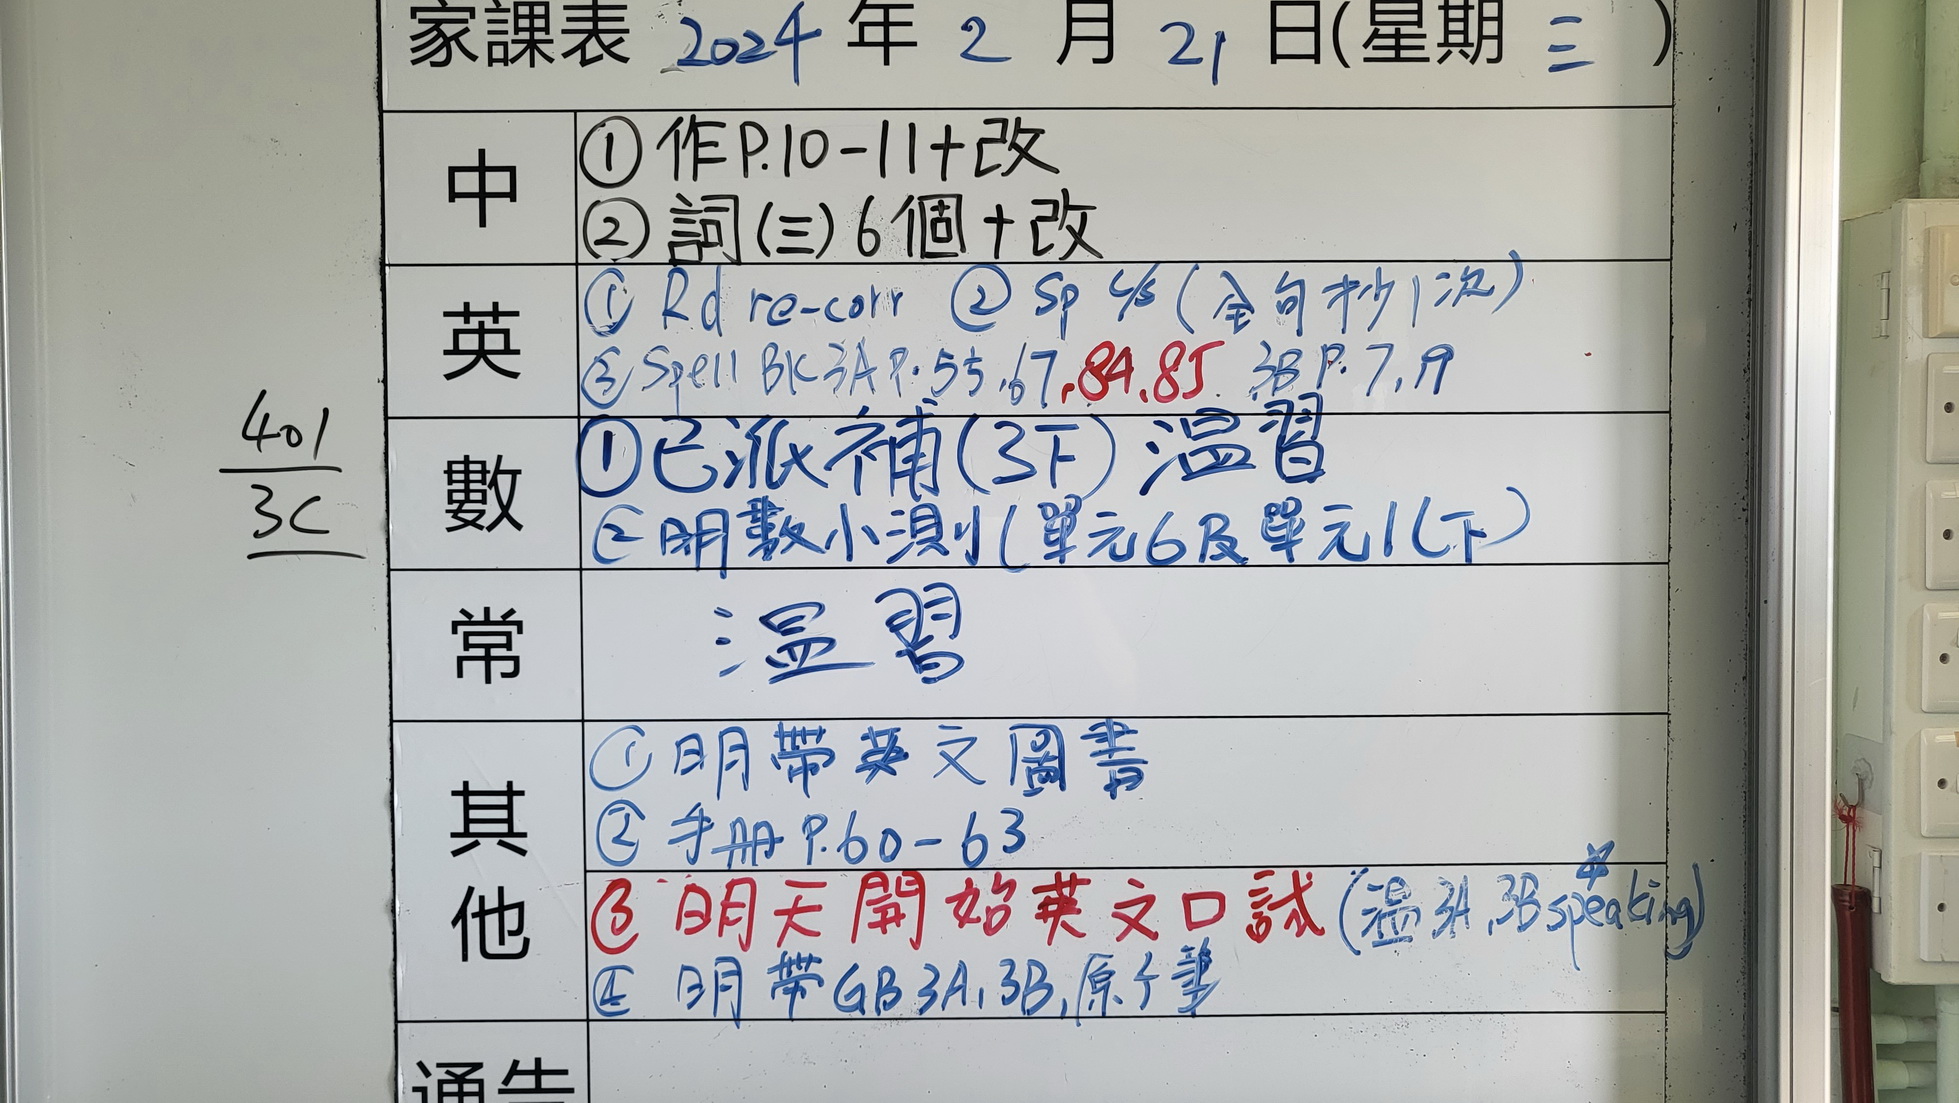 家課表 2024 年 2 月 21 日(星期 三 )
中
① 作P.10-11+改
② 詞(三)6個+改
英
① Rd re-corr ② Sp c/s (全句抄1次)
③ Spell BK 3A P.55,67,84,85 3B P.7,19
401
3C
數
① 已派補(3下) 温習
② 明數小測(單元6及單元1(下)
常
温習
其他
① 明帶英文圖書
② 手册 P.60-63
③ 明天開始英文口試 (温3A,3B speaking)
④ 明帶GB3A,3B,原子筆
通告